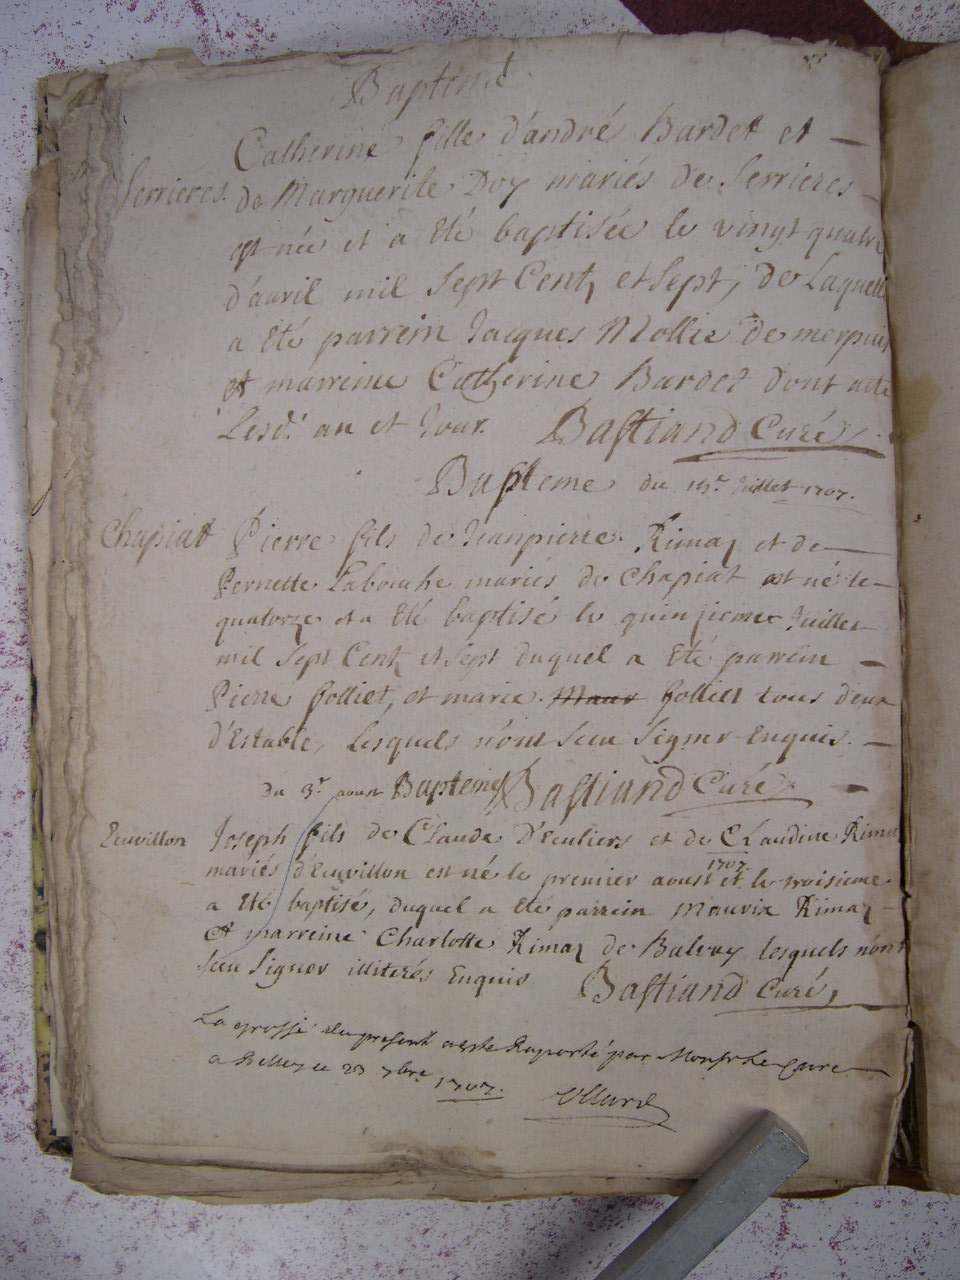 Bapteme
Catherine fille d'andré Bardet et —
Serrieres. de Marguerite Doy mariés de Serrieres
est née et a été baptisée le vingt quatre
d'auril mil Sept Centz et Sept, de Laquelle
a été parrein Jacques Mollie de merpuis
et marreine Catherine Bardet dont acte
Lesd. an et Jour. Bastiand Curé
Bapteme du 15e Juillet 1707.
Chapiat Pierre fils de Jeanpierre Rimaz et de —
Pernette Labouche mariés de Chapiat est né le —
quatorze et a été baptisé le quinzieme Juillet
mil Sept Centz et Sept duquel a été parrein —
Pierre folliet, et marie folliet tous deux
d'Estable, Lesquels n'ont Sceu Signer Enquis. —
du 3e aoust Bapteme Bastiand Curé —
Ecuvillon Joseph fils de Claude d'Eculiers et de Claudine Rimaz
1707
mariés d'Ecuvillon est né le premier aoust et le troisieme
a été baptisé, duquel a été parrein Maurix Rimaz —
et marreine Charlotte Rimaz de Balvay lesquels n'ont
Sceu Signer illiterés Enquis Bastiand Curé,
La grosse du present a esté Raporté par Monsr Le Cure —
a Belley ce 23 7bre 1707.